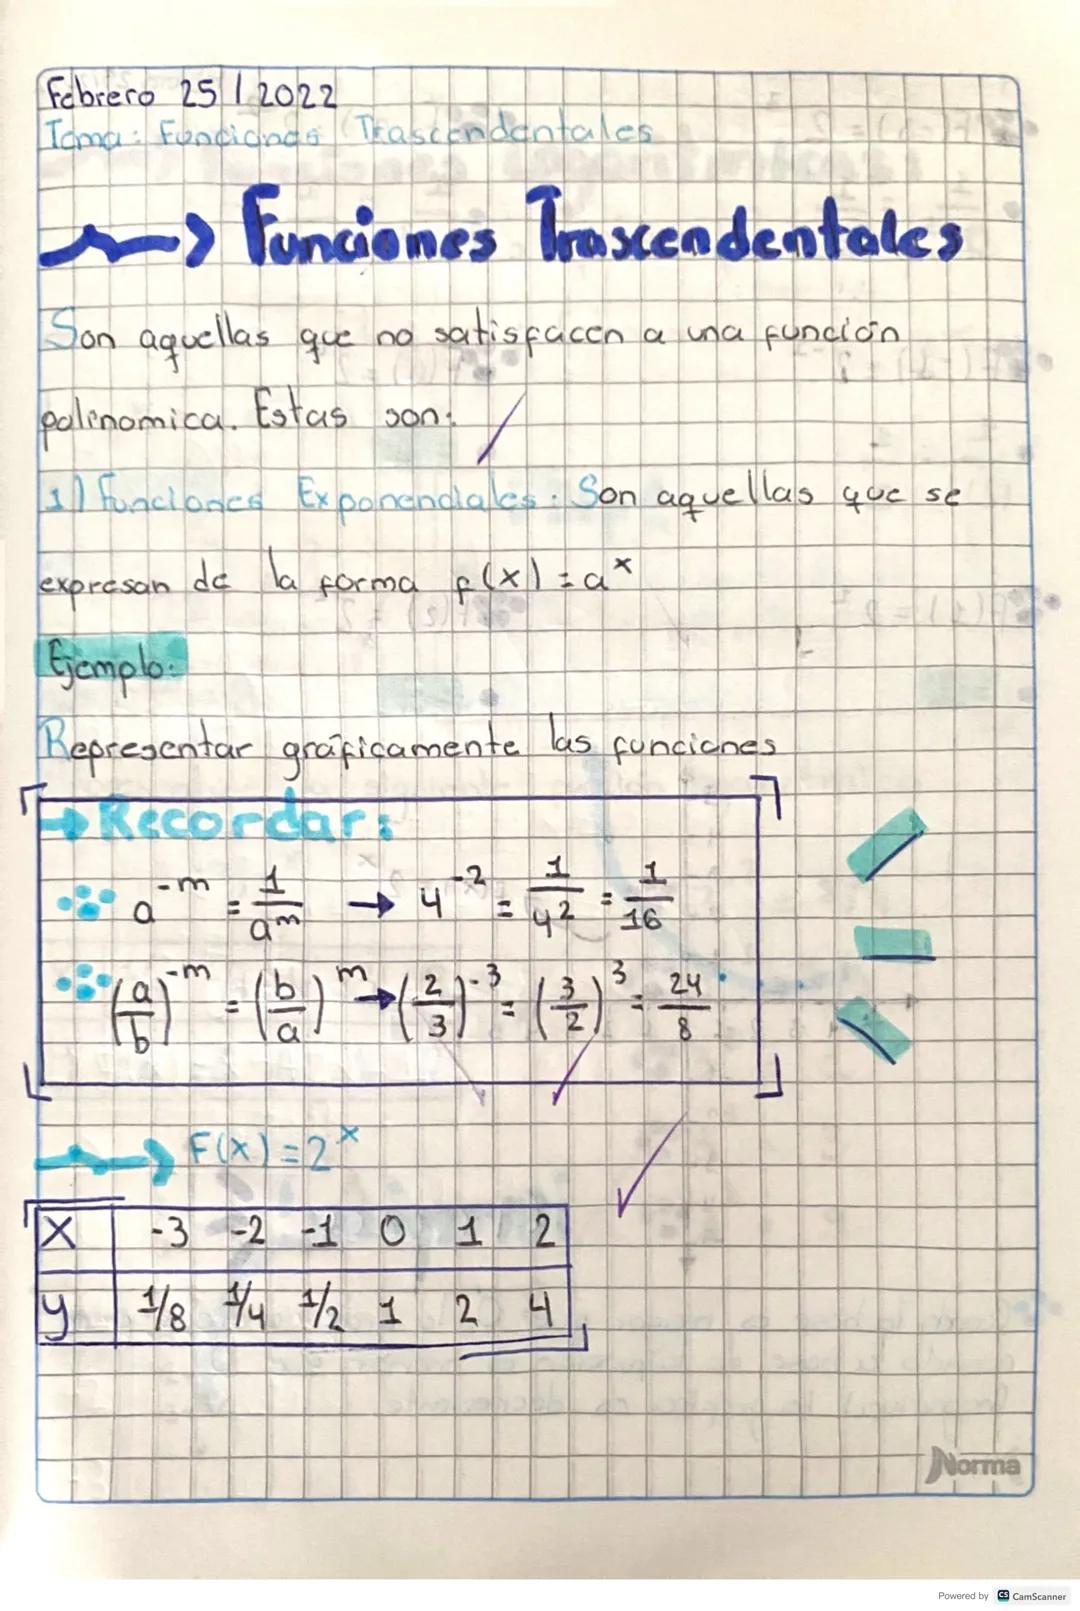 Febrero 25 / 2022
Tema: Funciones Trascendentales
Funciones Trascendentales
Son aquellas que no satisfacen a una función
polinomica. Estas son:
1) Funciones Exponenciales: Son aquellas que se
expresan de la forma f(x) = a^x
Ejemplo:
Representar gráficamente las funciones
→ Recordar:
a^-m = 1/a^m → 4^-2 = 1/4^2 = 1/16
(a/b)^-m = (b/a)^m → (2/3)^-3 = (3/2)^3 = 24/8
F(x) = 2^x
X -3 -2 -1 0 1 2
y 1/8 1/4 1/2 1 2 4
Norma
Powered by CS CamScanner